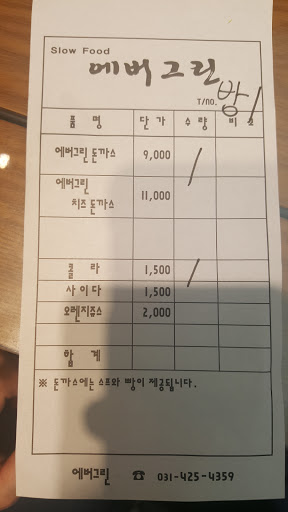 Slow Food
에버그린
T/no. 방 1
품 명 단 가 수 량 비 고
에버그린 돈까스 9,000 /
에버그린
치즈 돈까스 11,000
콜 라 1,500 /
사 이 다 1,500
오렌지쥬스 2,000
합 계
※ 돈까스에는 스프와 빵이 제공됩니다.
에버그린 ☎ 031-425-4359